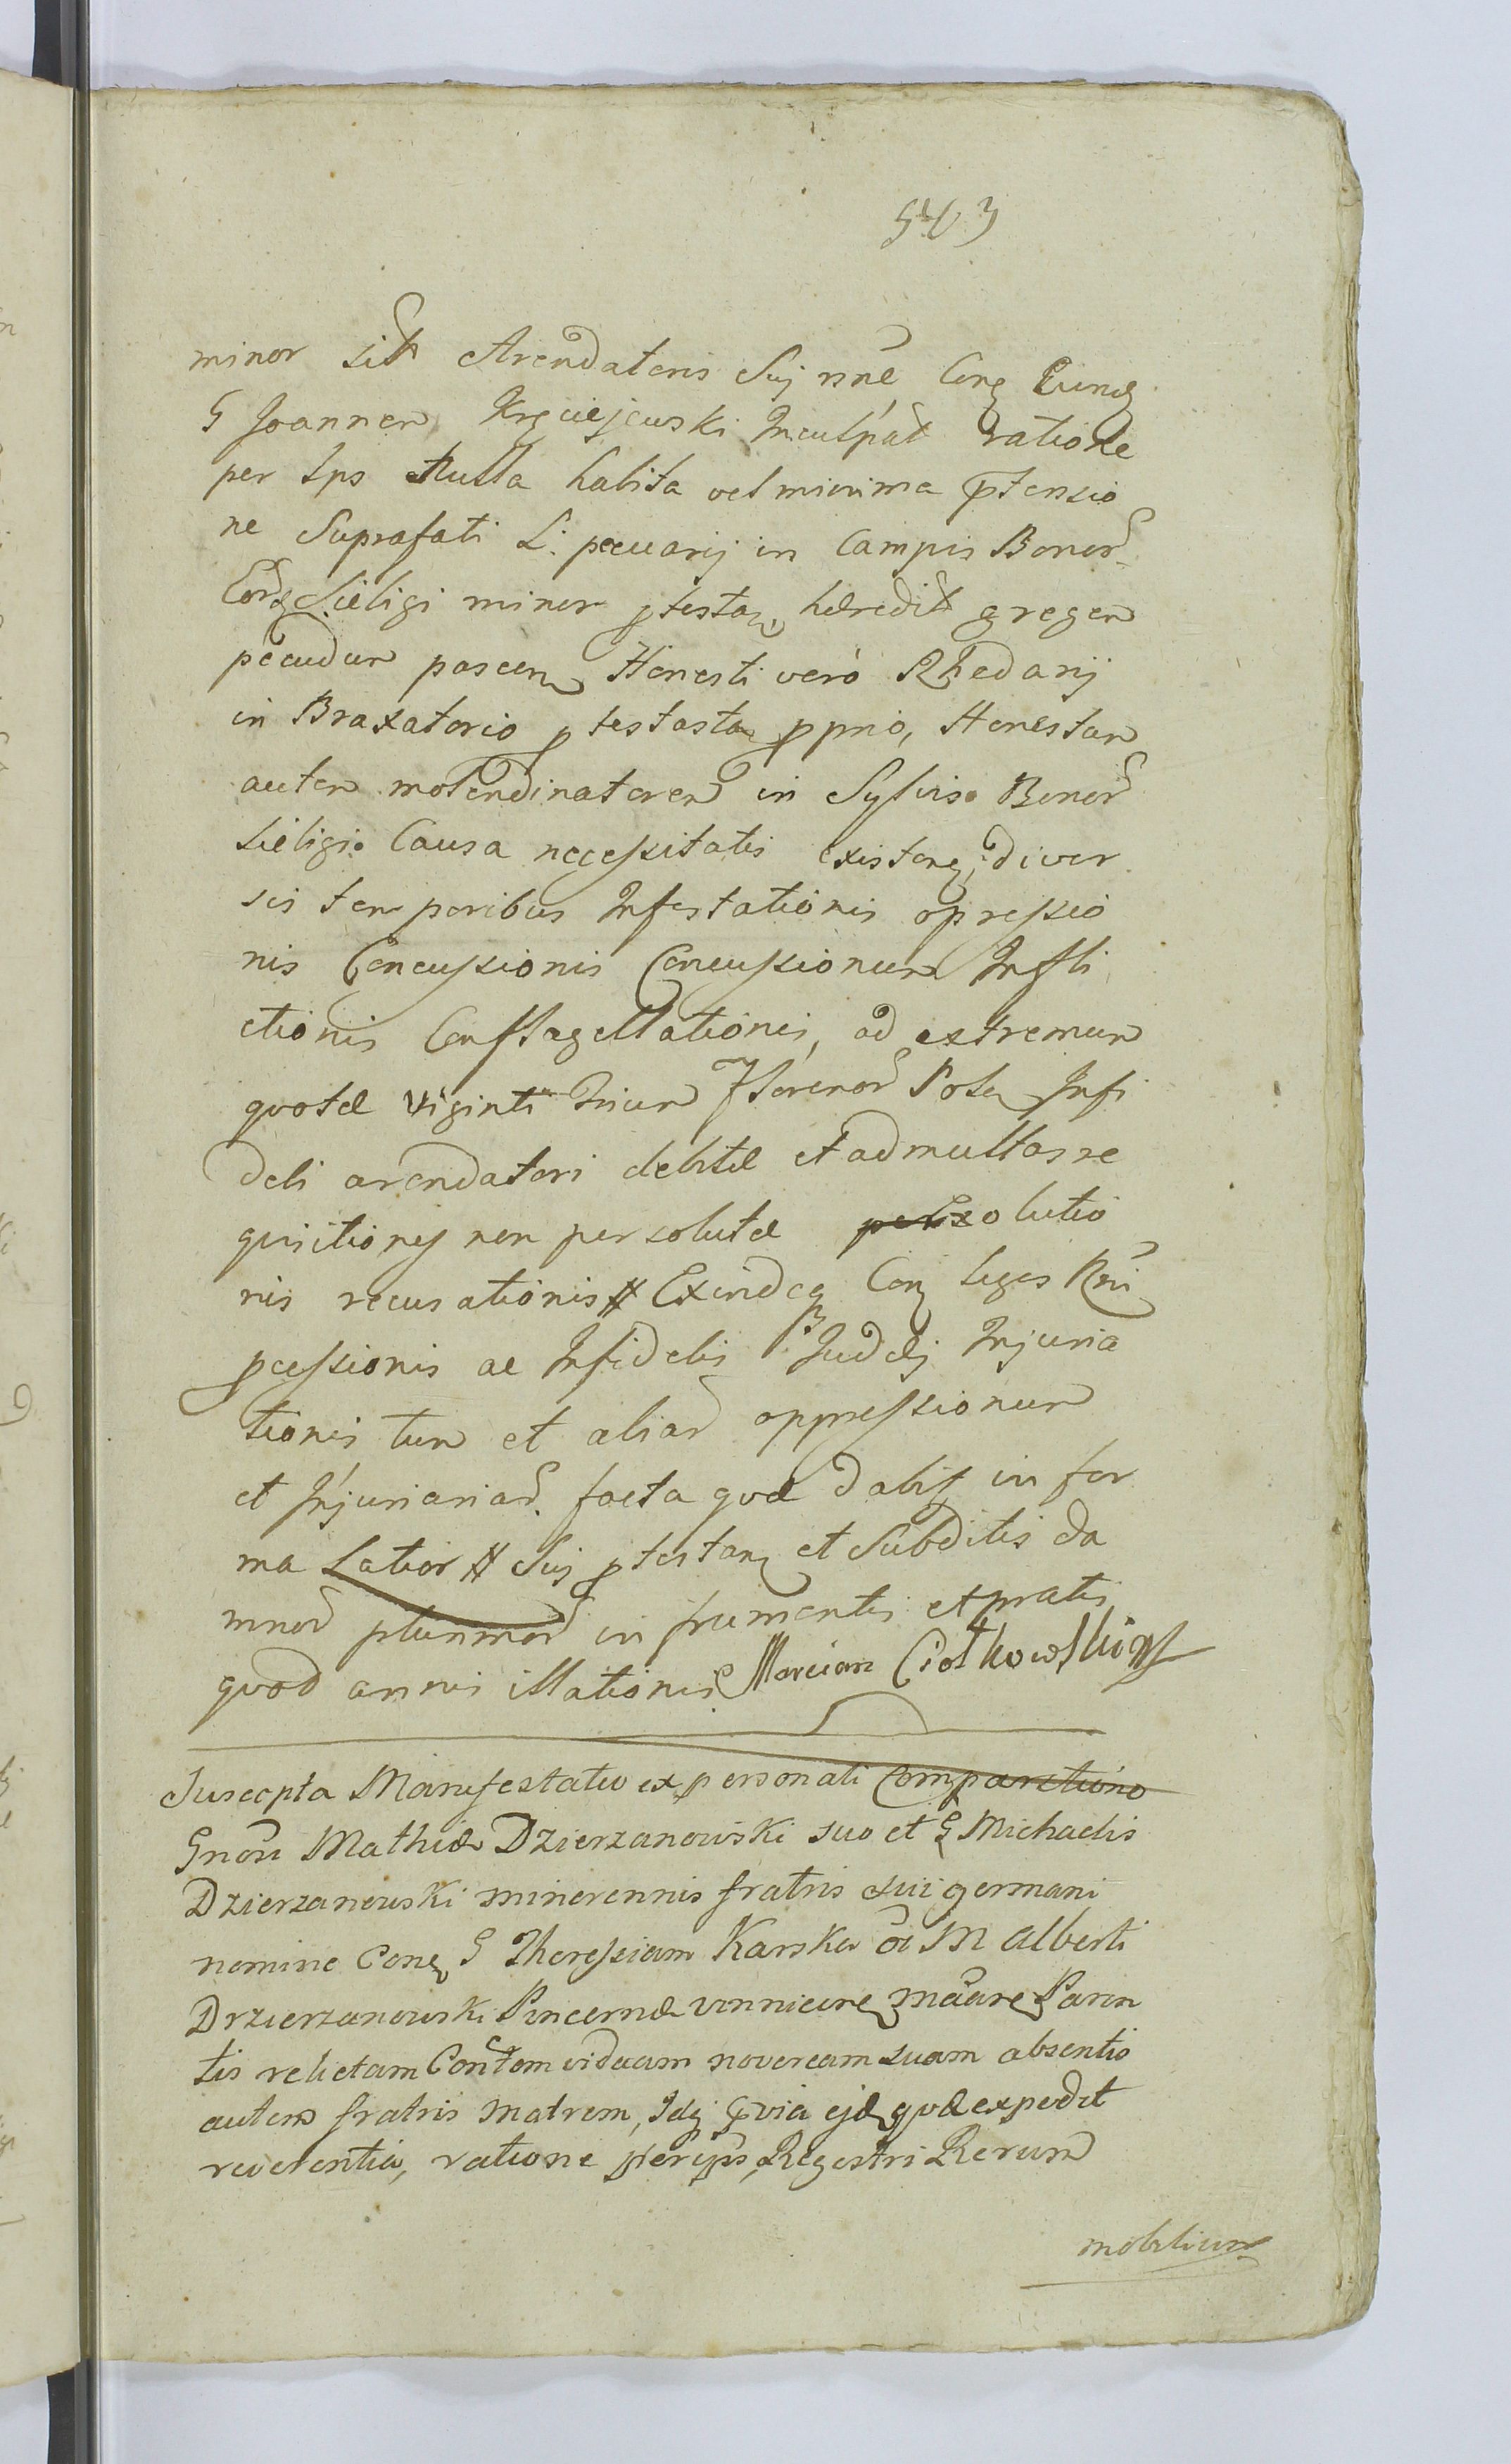 543
minor sit Arendatoris Sui nne Cong Eund
G Joannem Kręciejewski Inculpat ratione
per Ips Nulla habita vel minima ptensio
ne Suprafati L: pecuarij in Campis Bonor
Eord Sieligi minor ptestan hæredit gregem
pecudum pascen Honesti verò Rhedarij
in Braxatorio ptestantæ ppmio, Honestum
autem molendinatorem in Sylvis Bonor
Sieligi Causa necessitatis existen, diver
sis temporibus Infestationis opressio
nis Concussionis Concussionum Infli
ctionis Conflagellationis, ad extremum
quotæ viginti trium Florenor Pola Infi
deli arendatori debitæ et ad multas re
quisitiones non persolutæ solutio
nis recusationis # Exindeq Con leges Rni
pcessionis ac Infidelis Judæj Injuria
tionis tum et aliar oppressionum
et Injuriar facta quæ dabit in for
ma Latior # Suj ptestan et Subditis da
mnor plurimor in frumentis et pratis
quod annis illationis Marcian Ciołkowski mp
Suscepta Manifestatio ex personali Comparitione
Gnosi Mathiæ Dzierzanowski suo et G Michaelis
Dzierzanowski minorennis fratris sui germani
nomine Cong G Theressiam Karska oi M Alberti
Drzierzanowski Pincernæ Winnicen Parin
tis relictam Contem viduam novercam suam absentis
autem fratris Matrem, Idq qvia ejd qvd expedit
reverentia, ratione per ips, Regestri Rerum
mobilium